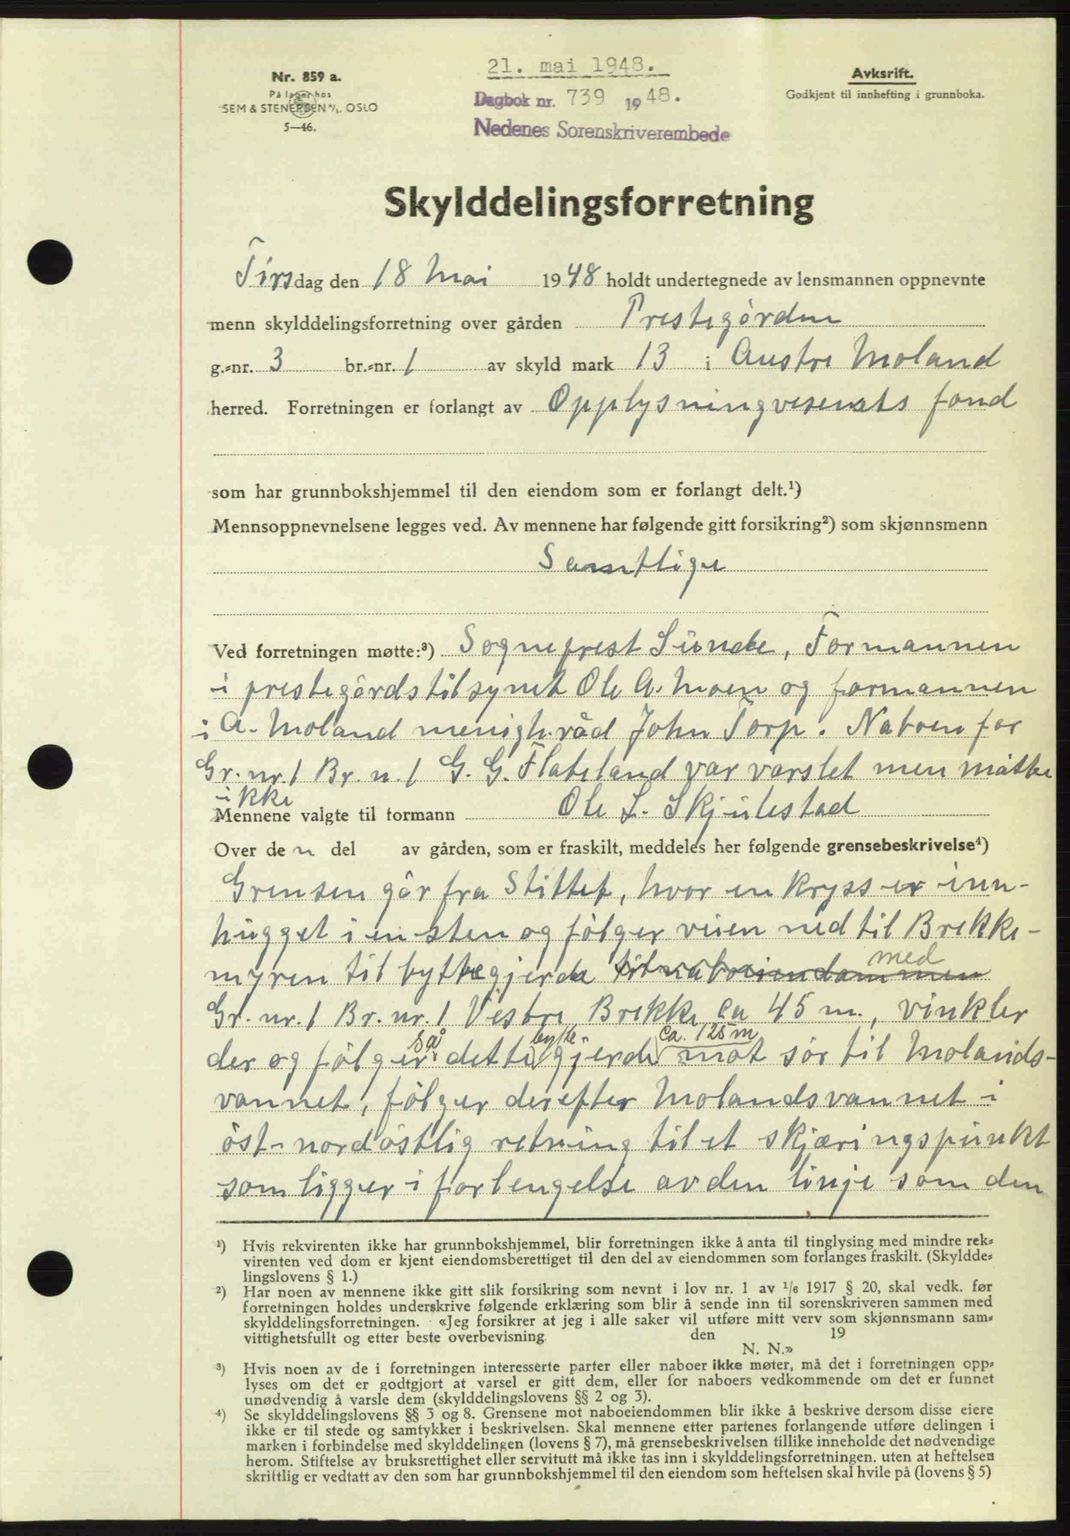 Nr. 859 a.
På lager hos
SEM & STENERSEN A/S. OSLO
5—46.
21. mai 1948.
Dagbok nr. 739 1948.
Nedenes Sorenskriverembede
Avksrift.
Godkjent til innhefting i grunnboka.
Skylddelingsforretning
Tirsdag den 18 Mai 1948 holdt undertegnede av lensmannen oppnevnte
menn skylddelingsforretning over gården Prestegården
g.-nr. 3 br.-nr. 1 av skyld mark 13 i Austre Moland
herred. Forretningen er forlangt av Opplysningvesenets fond
som har grunnbokshjemmel til den eiendom som er forlangt delt.¹)
Mennsoppnevnelsene legges ved. Av mennene har følgende gitt forsikring²) som skjønnsmenn
Samtlige
Ved forretningen møtte:³) Sogneprest Sunde, Formannen
i prestegårdstilsynet Ole A. Moen og formannen
i A. Moland menigh.råd John Torp. Naboen for
Gr. nr. 1 Br. n. 1 G. G. Flateland var varslet men måtte
ikke
Mennene valgte til formann Ole L. Skjulestad
Over den del av gården, som er fraskilt, meddeles her følgende grensebeskrivelse⁴)
Grensen går fra Stittet, hvor en kryss er inn-
hugget i en sten og følger veien ned til Brekke-
myren til byttegjerde til naboeiendommen med
Gr. nr. 1 Br. nr. 1 Vestre Brekke ca 45 m., vinkler
der og følger så dette bytte gjerde ca. 125 m mot sør til Molands-
vannet, følger derefter Molandsvannet i
øst-nordøstlig retning til et skjæringspunkt
som ligger i forlengelse av den linje som den
¹) Hvis rekvirenten ikke har grunnbokshjemmel, blir forretningen ikke å anta til tinglysing med mindre rek-
virenten ved dom er kjent eiendomsberettiget til den del av eiendommen som forlanges fraskilt. (Skyldde-
lingslovens § 1.)
²) Har noen av mennene ikke gitt slik forsikring som nevnt i lov nr. 1 av 1/6 1917 § 20, skal vedk. før
forretningen holdes underskrive følgende erklæring som blir å sende inn til sorenskriveren sammen med
skylddelingsforretningen. «Jeg forsikrer at jeg i alle saker vil utføre mitt verv som skjønnsmann sam-
vittighetsfullt og etter beste overbevisning den 19
N. N.»
³) Hvis noen av de i forretningen interesserte parter eller naboer ikke møter, må det i forretningen opp-
lyses om det er godtgjort at varsel er gitt dem, eller for naboers vedkommende om det er funnet
unødvendig å varsle dem (skylddelingslovens §§ 2 og 3).
⁴) Se skylddelingslovens §§ 3 og 8. Grensene mot naboeiendommen blir ikke å beskrive dersom disse eiere
ikke er til stede og samtykker i beskrivelsen. Skal mennene etter partenes forlangende utføre delingen i
marken i forbindelse med skylddelingen (lovens § 7), må grensebeskrivelsen tillike inneholde det nødvendige
herom. Stiftelse av bruksrettighet eller servitutt må ikke tas inn i skylddelingsforretningen, uten at heftelsen
skriftlig er vedtatt av den som har grunnbokshjemmel til den eiendom som heftelsen skal hvile på (lovens § 5)